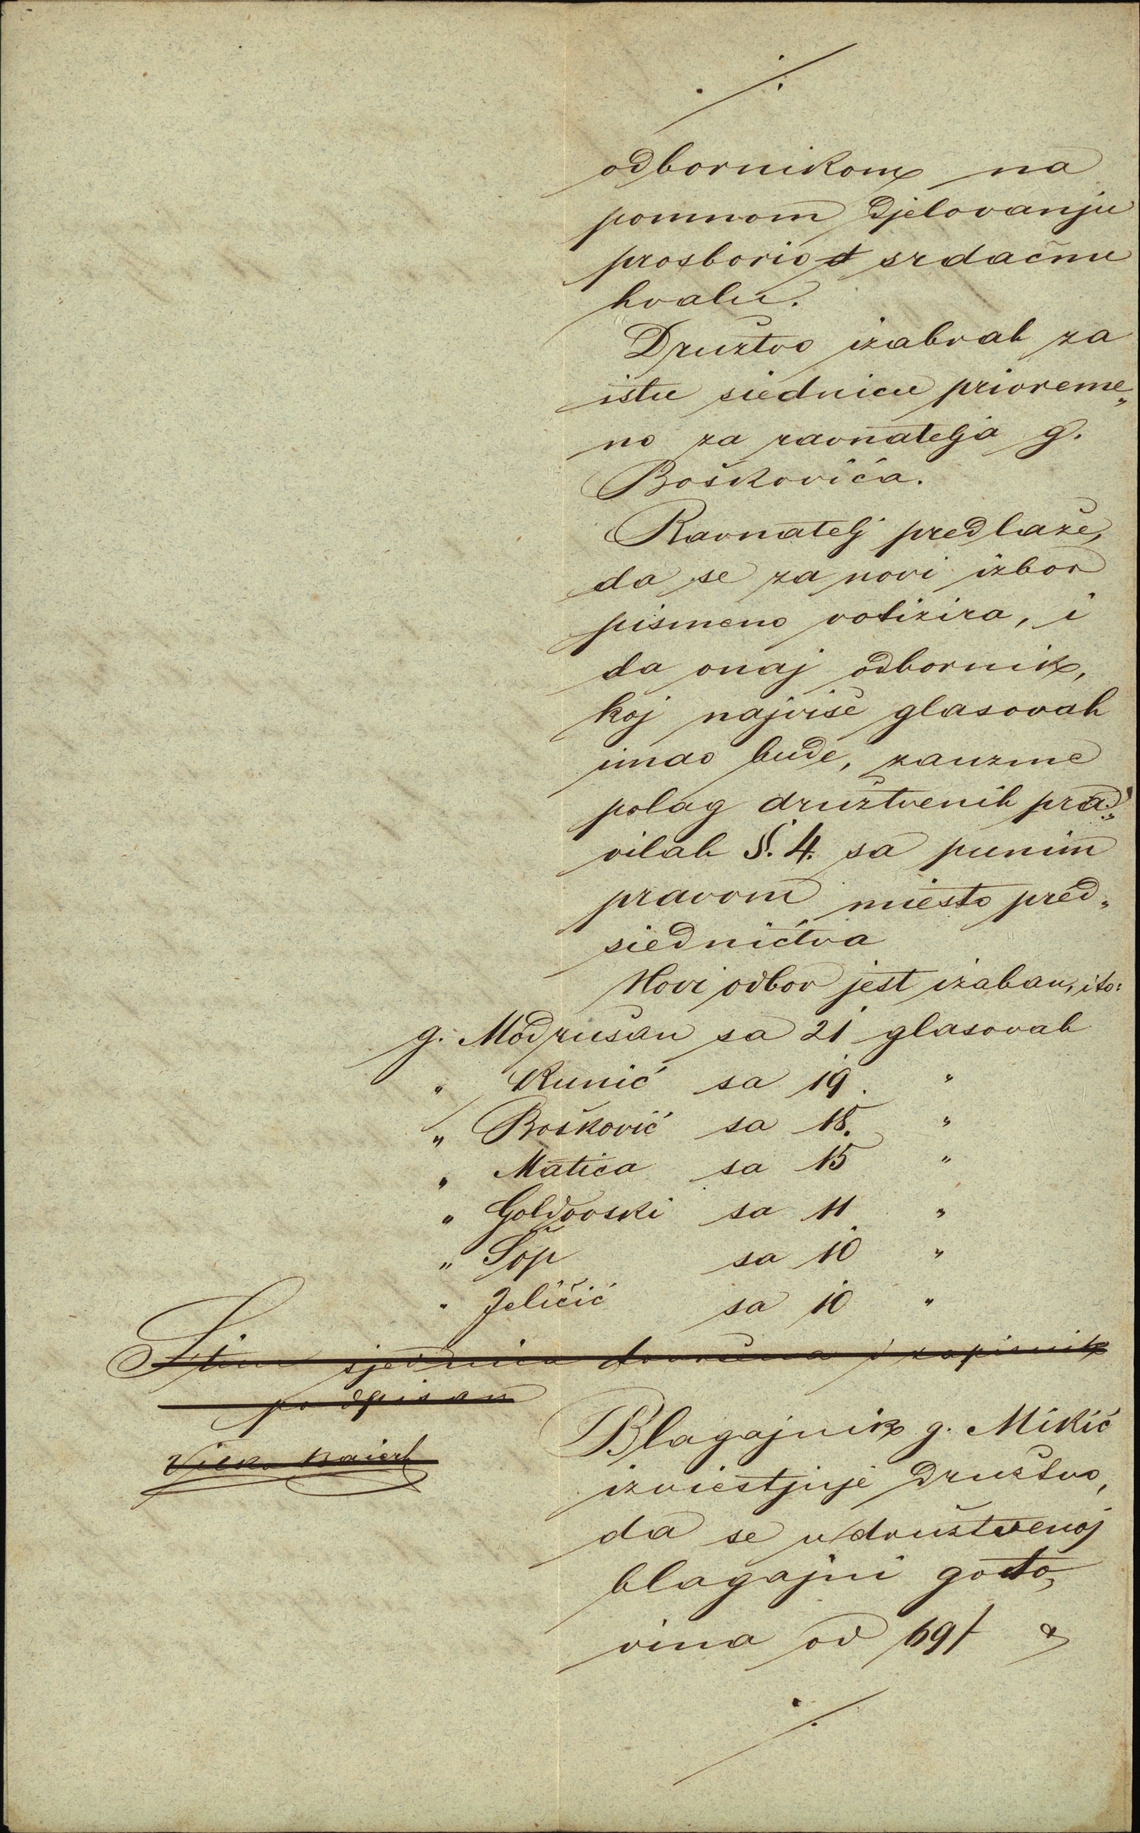 ./.
odbornikom na
pomnom djelovanju
prosborio srdačnu
hvalu.
Družtvo izabrah za
istu siednicu privreme„
no za ravnatelja g.
Boškovića.
Ravnatelj predlaže,
da se za novi izbor
pismeno votizira, i
da onaj odbornik,
koj najviše glasovah
imao bude, zauzme
polag družtvenih pra„
vilah §. 4. sa punim
pravom miesto pred„
siedničtva
Novi odbor jest izaban, i to:
g. Modrušan sa 21 glasovah
„ Kunić sa 19. „
„ Bošković sa 18. „
„ Matica sa 15 „
„ Goldovski sa 11 „
„ Šop sa 10 „
„ Jeličić sa 10 „
Stim sjednica dovršena i zapisnik
podpisan
Blagajnik g. Mikić
izviestjuje Družtvo,
da se u družtvenoj
blagajni goto„
vina od 69f
./.